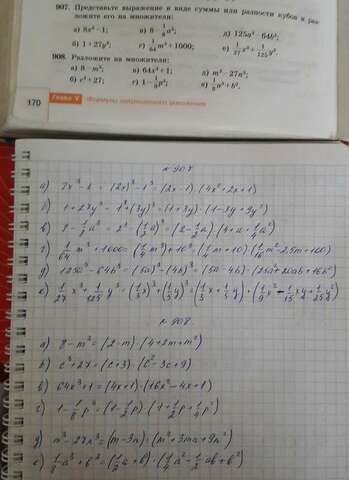 907. Представьте выражение в виде суммы или разности кубов и раз-
ложите его на множители:
а) 8x³ - 1; в) 8 - 1/8 a³; д) 125a³ - 64b³;
б) 1 + 27y³; г) 1/64 m³ + 1000; е) 1/27 x³ + 1/125 y³.
908. Разложите на множители:
а) 8 - m³; в) 64x³ + 1; д) m³ - 27n³;
б) c³ + 27; г) 1 - 1/8 p³; е) 1/8 a³ + b³.
170 Глава V Формулы сокращённого умножения
№ 907
а) 7x³ - 1 = (2x)³ - 1³ = (2x - 1) · (4x² + 2x + 1)
б) 1 + 27y³ = 1³ + (3y)³ = (1 + 3y) · (1 - 3y + 9y²)
в) 8 - 1/8 a³ = 2³ - (1/2 a)³ = (2 - 1/2 a) · (4 + a + 1/4 a²)
г) 1/64 m³ + 1000 = (1/4 m)³ + 10³ = (1/4 m + 10) · (1/16 m² - 2,5m + 100)
д) 125a³ - 64b³ = (5a)³ - (4b)³ = (5a - 4b) · (25a + 20ab + 16b²)
е) 1/27 x³ + 1/125 y³ = (1/3 x)³ + (1/5 y)³ = (1/3 x + 1/5 y) · (1/9 x² - 1/15 xy + 1/25 y²)
№ 908
а) 8 - m³ = (2 - m) · (4 + 2m + m²)
б) c³ + 27 = (c + 3) · (c² - 3c + 9)
в) 64x³ + 1 = (4x + 1) · (16x² - 4x + 1)
г) 1 - 1/8 p³ = (1 - 1/2 p) · (1 + 1/2 p + 1/4 p²)
д) m³ - 27n³ = (m - 3n) · (m² + 3mn + 9n²)
е) 1/8 a³ + b³ = (1/2 a + b) · (1/4 a² - 1/2 ab + b²)